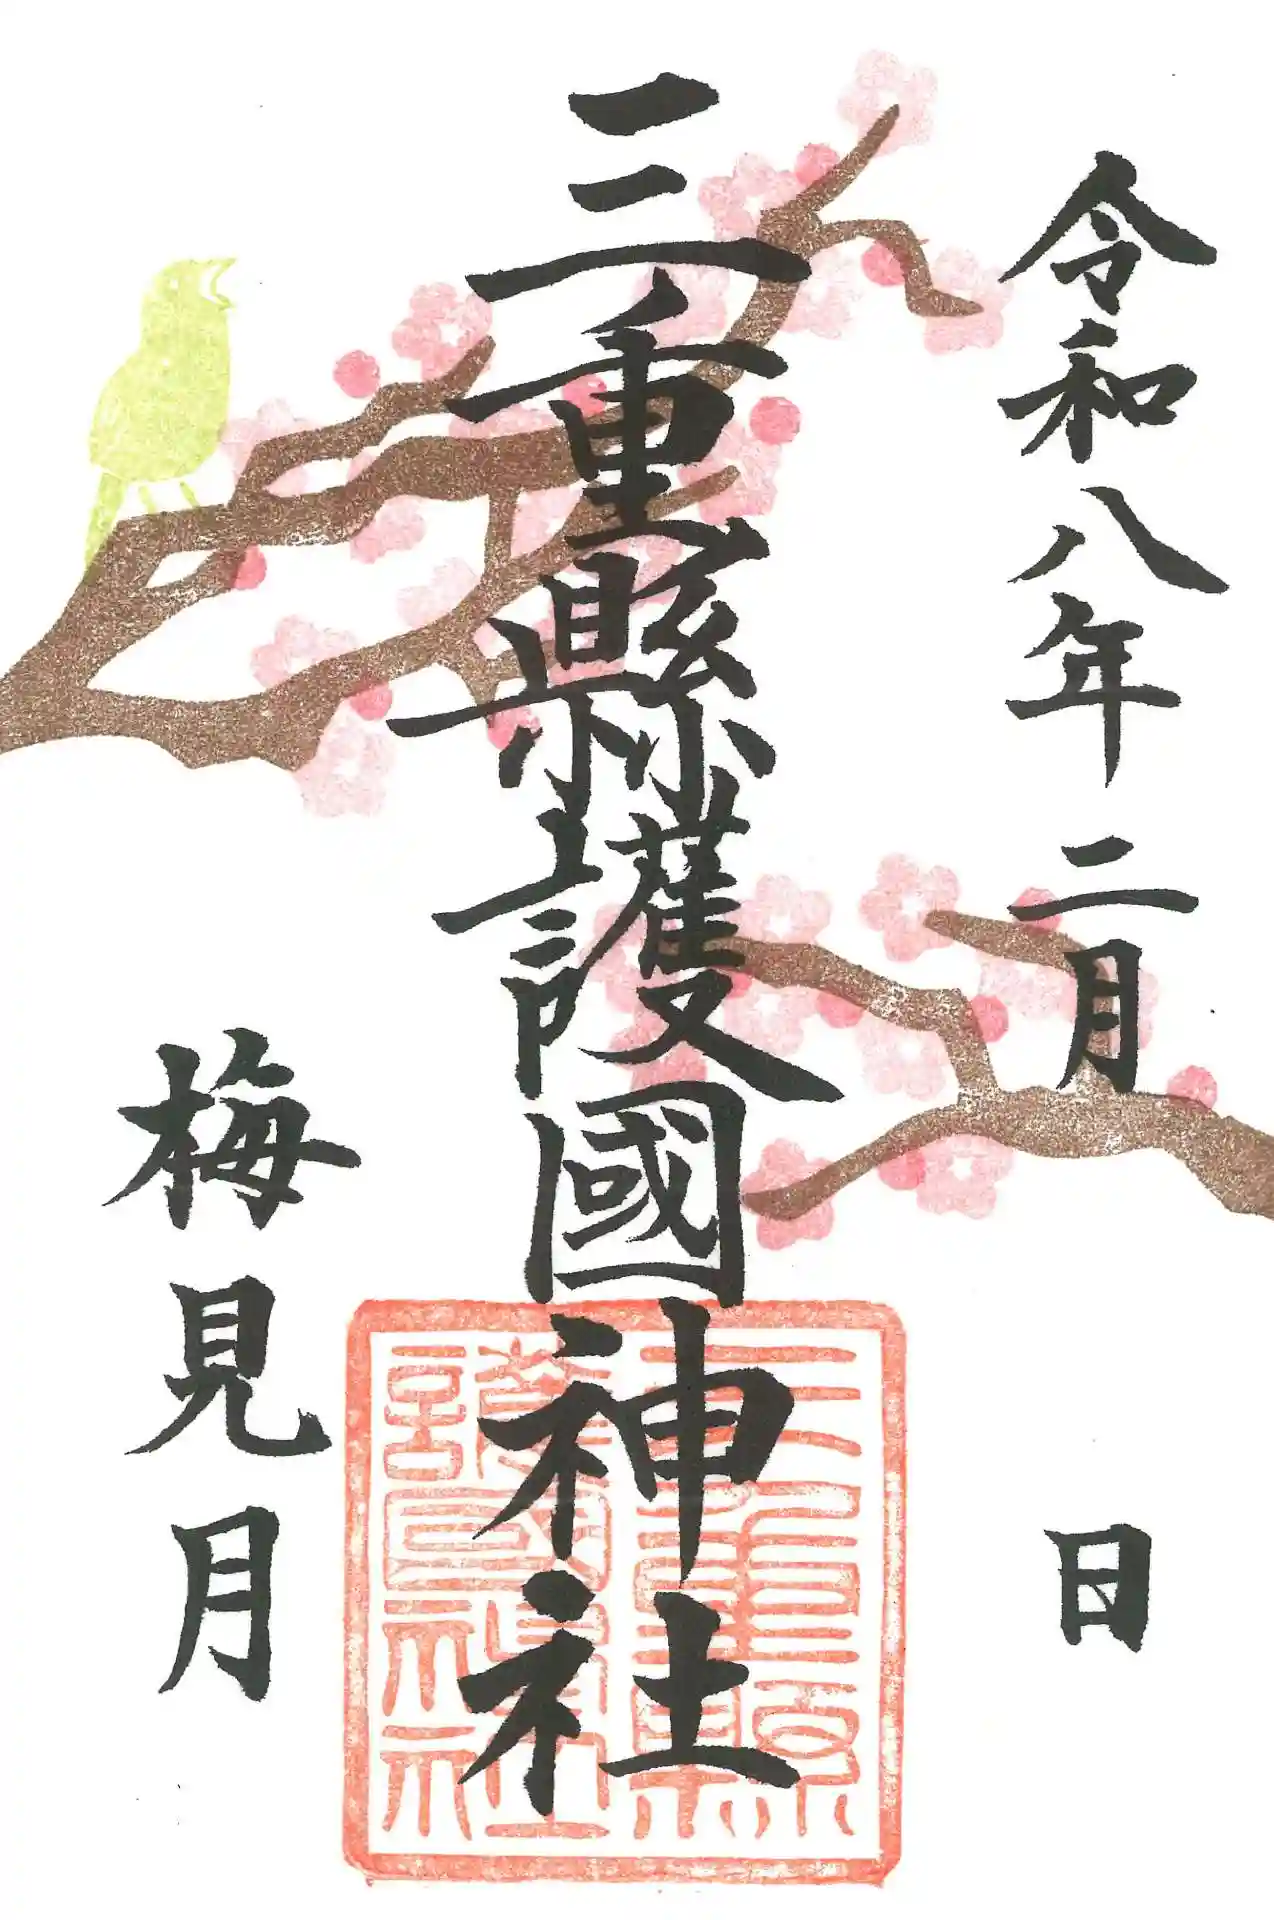 令和八年二月 日
三重縣護國神社
梅見月
三重縣
護國神社